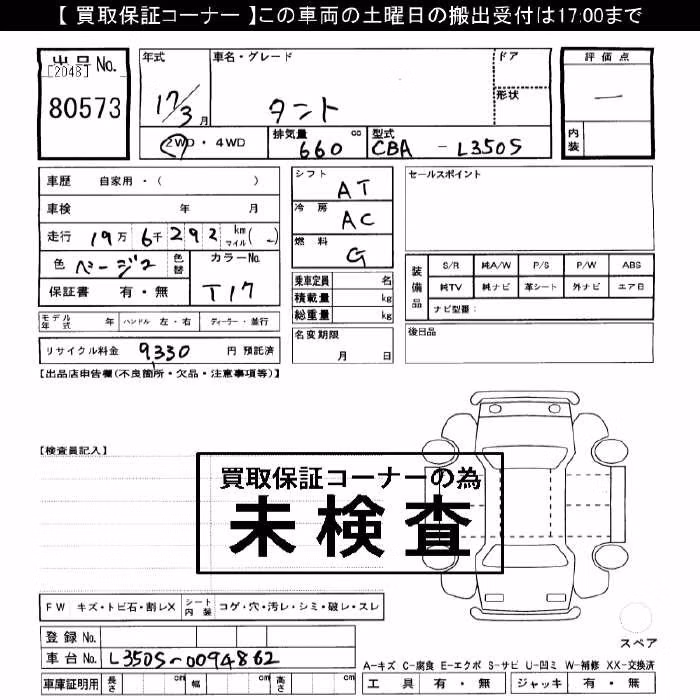 【 買取保証コーナー 】この車両の土曜日の搬出受付は17:00まで
出品No.
[2048]
80573
年式 車名・グレード ドア
17/3月 タント 形状
2WD・4WD 排気量 660 cc 型式 CBA - L350S
評価点
—
内装
車歴 自家用・( )
車検 年 月
走行 19万 6千 2 9 2 km マイル( - )
色 ベージュ 色替 カラーNo. T17
保証書 有・無
モデル年式 年 ハンドル 左・右 ディーラー・並行
リサイクル料金 9330 円 預託済
シフト AT
冷房 AC
燃料 G
乗車定員 名
積載量 kg
総重量 kg
名変期限
月 日
セールスポイント
装備品 S/R 純A/W P/S P/W ABS
純TV 純ナビ 革シート 外ナビ エアB
ナビ型番:
後日品
【出品店申告欄(不良箇所・欠品・注意事項等)】
【検査員記入】
買取保証コーナーの為
未検査
FW キズ・トビ石・割レX シート内装 コゲ・穴・汚レ・シミ・破レ・スレ
登録No.
車台No. L350S-0094862
車庫証明用 長さ cm 幅 cm 高さ cm
スペア
A-キズ C-腐食 E-エクボ S-サビ U-凹ミ W-補修 XX-交換済
工具 有・無 ジャッキ 有・無